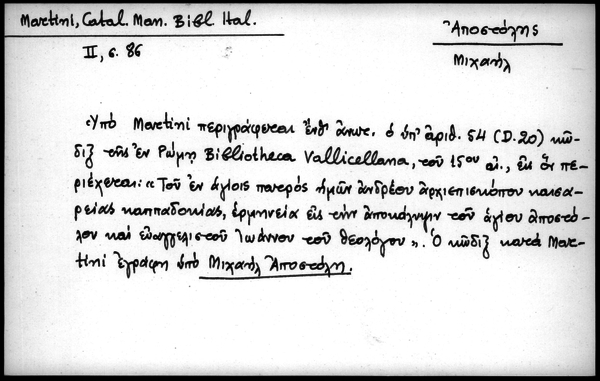 Martini, Catal. Man. Bibl Ital.
II, σ. 86
Ἀποστόλης
Μιχαήλ
Ὑπό Martini περιγράφεται ἔνθ' ἀνωτ. ὁ ὑπ' ἀριθ. 54 (D.20) κῶ-
διξ τῆς ἐν Ρώμῃ Bibliotheca Vallicellana, τοῦ 15ου αἰ., εἰς ὅν πε-
ριέχεται: «Τοῦ ἐν ἁγίοις πατερός ἡμῶν ἀνδρέου ἀρχιεπισκόπου καισα-
ρείας καππαδοκίας, ἑρμηνεία εἰς τήν ἀποκάλυψιν τοῦ ἁγίου ἀποστό-
λου καί εὐαγγελιστοῦ Ἰωάννου τοῦ θεολόγου». Ὁ κῶδιξ κατά Mar-
tini ἐγράφη ὑπό Μιχαήλ Ἀποστόλη.